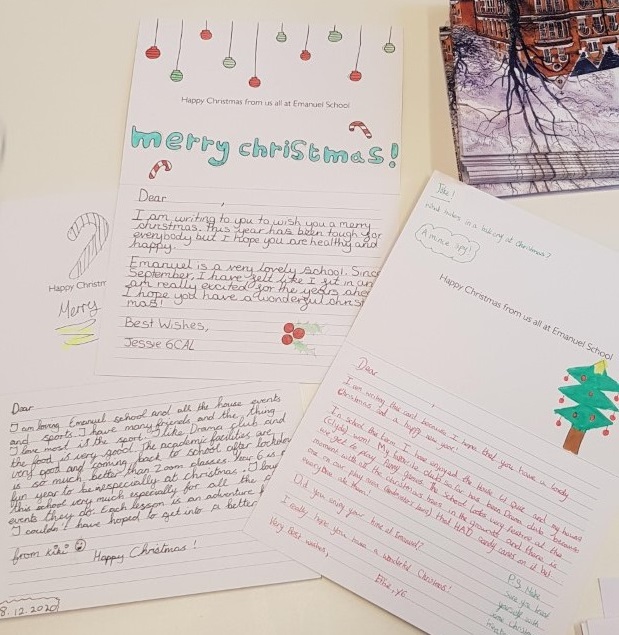 Happy Christmas from us all at Emanuel School
merry christmas!
Dear ,
I am writing to you to wish you a merry
christmas. This year has been tough for
everybody but I hope you are healthy and
happy.
Emanuel is a very lovely school. Since
September, I have felt like I fit in an
am really excited for the years ahe
I hope you have a wonderful christ
mas!
Best Wishes,
Jessie 6CAL
Happy Christm
Merry
Dear
I am loving Emanuel school and all the house events
and sports. I have many friends and the thing
I love most is the sport. I like Drama club and
the food is very good. The academic facilities are
very good and coming back to school after lockdow
is so much better than Zoom classes. Year 6 is a
fun year to be especially at christmas. I lov
this school very much especially for all the
events they do. Each lesson is an adventure
I couldn't have hoped to get into a better
from kiki Happy Christmas!
8.12.2020
Joke!
What hides in a bakery at Christmas?
A mince spy!
Happy Christmas from us all at Emanuel School
Dear ,
I am writing this card because I hope that you have a lovely
Christmas and a happy new year!
In school this term, I have enjoyed the house quiz and my house
won! My favourite clubs so far have been drama club because
we get to play funny games. The school looks very festive at the
moment with all the christmas trees in the grounds and there is
one in our play area that HAD candy canes on it but
everyone ate them!
Did you enjoy your time at Emanuel?
I really hope you have a wonderful Christmas!
Very Best wishes,
Ellie, Y6
P.S. Make
sure you treat
yourself with
some